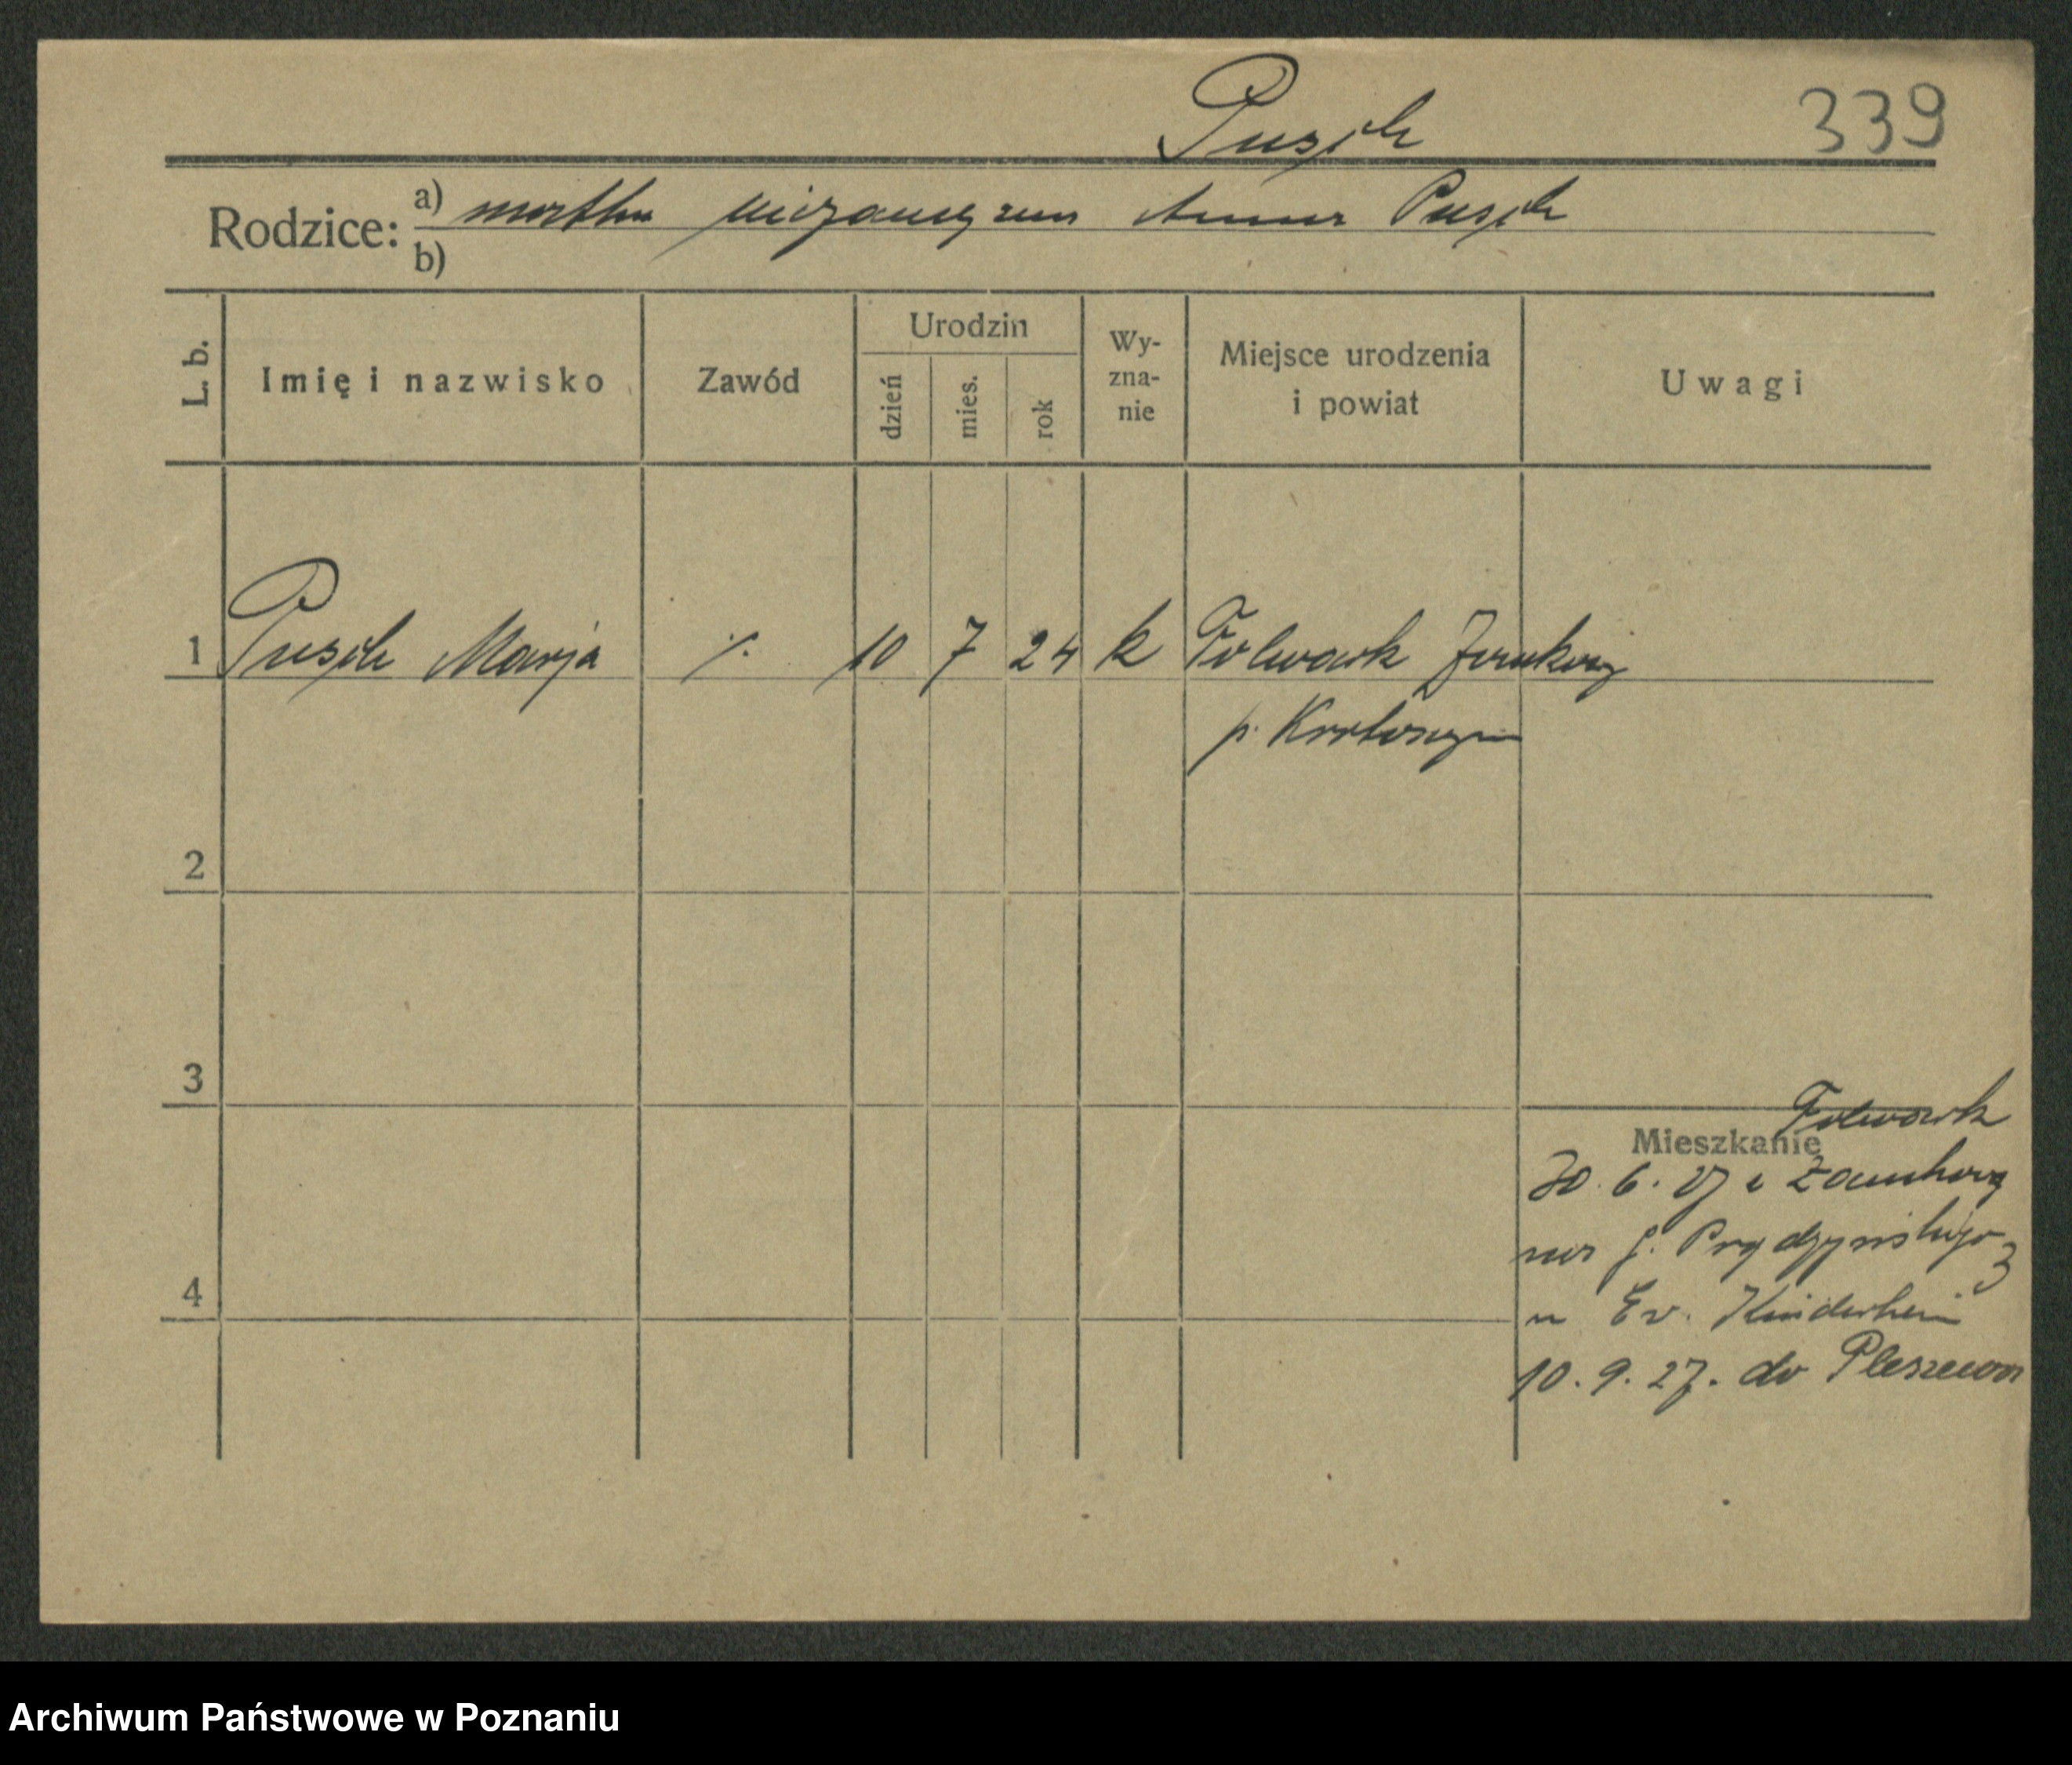 Pusch
339
Rodzice: a) matka niezamężna Anna Pusch
b)
L. b.
Imię i nazwisko
Zawód
Urodzin
dzień
mies.
rok
Wy-
zna-
nie
Miejsce urodzenia
i powiat
Uwagi
1 Pusch Marja ·/. 10 7 24 k Folwark
p. Krotoszyn
2
3
4
Mieszkanie
Folwark
30. 6. 27 z
J. Prądzyńskiego 3
Ev. Kinderheim
10. 9. 27. do Pleszewa
Archiwum Państwowe w Poznaniu